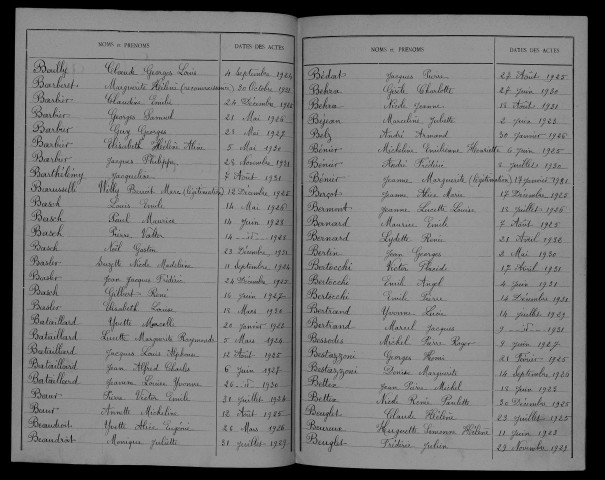 NOMS et PRÉNOMS DATES DES ACTES
Bailly Claude Georges Louis 4 Septembre 1924
Barberet Marguerite Hélène (reconnaissance) 30 Octobre 1931
Barbier Claudine Emilie 24 Décembre
Barbier Georges Fernand 21 Mai 1926
Barbier Guy Georges 23 Mai 1927
Barbier Elisabeth Hélène Alice 5 Mai 1930
Barbier Jacques Philippe 28 Novembre 1931
Barthélémy Jacqueline 7 Août 1931
Barusselle Willy Benoit Marc (légitimation) 12 Décembre 1925
Basch Louis Emile 14 Mai 1926
Basch Paul Maurice 14 Juin 1928
Basch Pierre Walter 14 -d°- 1928
Basch Noël Gaston 23 Décembre 1931
Basler Suzette Nicole Madeleine 11 Septembre 1924
Basler Jean Jacques Frédéric 24 Décembre 1925
Basch Gilbert René 16 Juin 1927
Basler Elisabeth Louise 12 Mars 1930
Bataillard Yvette Marcelle 20 Janvier
Bataillard Lucette Marguerite Raymonde 5 Mars 1924
Bataillard Jacques Louis Alphonse 12 Août 1925
Bataillard Jean Alfred Charles 6 Juin 1927
Bataillard Jeanne Louise Yvonne 26 -d°- 1930
Baur Pierre Victor Emile 31 Juillet 1924
Baur Annette Micheline 12 Août 1925
Beaudroit Yvette Alice Eugénie 26 Mars 1926
Beaudroit Monique Juliette 31 Juillet 1929
NOMS et PRÉNOMS DATES DES ACTES
Bédat Jacques Pierre 27 Août 1925
Behra Gisèle Charlotte 27 Juin 1930
Behra Nicole Jeanne 12 Août 1931
Bejean Marceline Juliette 2 Juin
Belz André Armand 30 Janvier 1926
Bénier Micheline Emilienne Henriette 6 Juin 1925
Bénier André Frédéric Juillet 1930
Bénier Jeanne Marguerite (légitimation) 17 Janvier 1931
Berçot Jeanne Alice Marie 17 Décembre 1925
Bermont Jeanne Lucette Louise 12 Juillet 1926
Bernard Maurice Emile 7 Août 1925
Bernard Lydette Renée 21 Avril 1930
Bertin Jean Georges Mai 1930
Bertocchi Victor Placide 17 Avril 1931
Bertocchi Emile Angel 4 Juin 1931
Bertocchi Emile Pierre 14 Décembre 1931
Bertrand Yvonne Lucie 14 Juillet 1929
Bertrand Marcel Jacques 9 -d°- 1931
Bessodes Michel Pierre Roger 9 Juin 1927
Bestazzoni Georges Henri 21 Février 1925
Bestazzoni Denise Marguerite 14 Septembre 1926
Bettex Jean Pierre Michel 12 Juin 1925
Bettex Nicole Renée Paulette 30 Décembre 1925
Beuglet Claude Hélène 23 Juillet 1925
Beureux Huguette Simonne Hélène 11 Juin 1928
Beuglet Frédéric Julien 29 Novembre 1929